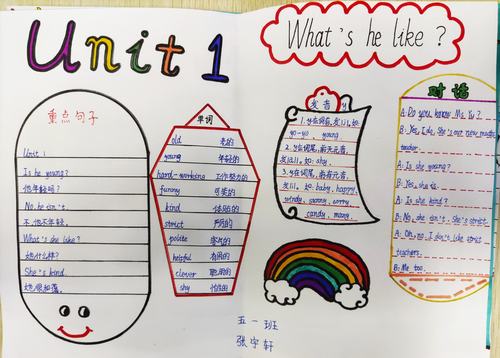 Unit 1
What's he like?
重点句子
Unit 1
Is he young?
他年轻吗?
No, he isn't.
不,他不年轻。
What's she like?
她什么样?
She's kind.
她很和蔼。
单词
old 老的
young 年轻的
hard-working 工作努力的
funny 可笑的
kind 体贴的
strict 严厉的
polite 客气的
helpful 有用的
clever 聪明的
shy 怕羞的
发音 y
1. y在词首,发[j],如
yo-yo, young
2. y在词尾,前无元音,
发[ai],如:shy,
3. y在词尾,前有元音,
发[i],如:baby, happy,
windy, sunny, sorry
candy, many.
对话
A: Do you know Ms Yu?
B: Yes, I do. She's our new music
teacher.
A: Is she young?
B: Yes, she is.
A: Is she kind?
B: No, she isn't. She's strict.
A: Oh, no. I don't like strict
teachers.
B: Me too.
五一班
张宇轩